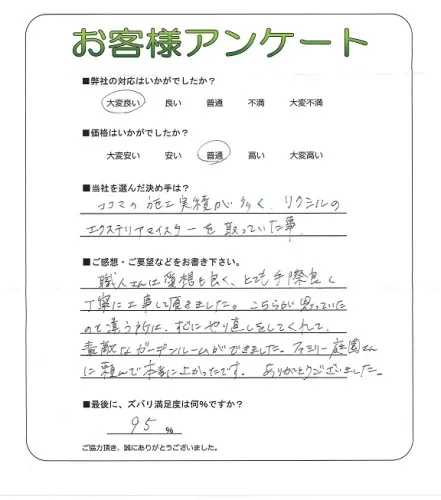 お客様アンケート
■弊社の対応はいかがでしたか？
大変良い 良い 普通 不満 大変不満
■価格はいかがでしたか？
大変安い 安い 普通 高い 大変高い
■当社を選んだ決め手は？
ココマの施工実績が多く、リクシルの
エクステリアマイスターを取っていた事
■ご感想・ご要望などをお書き下さい。
職人さんは愛想も良く、とても手際良く
丁寧に工事して頂きました。こちらが思っていた
のと違う所は、すぐにやり直しをしてくれて、
素敵なガーデンルームができました。ファミリー庭園さん
に頼んで本当に よかったです。 ありがとうございました。
■最後に、ズバリ満足度は何%ですか？
95 %
ご協力頂き、誠にありがとうございました。